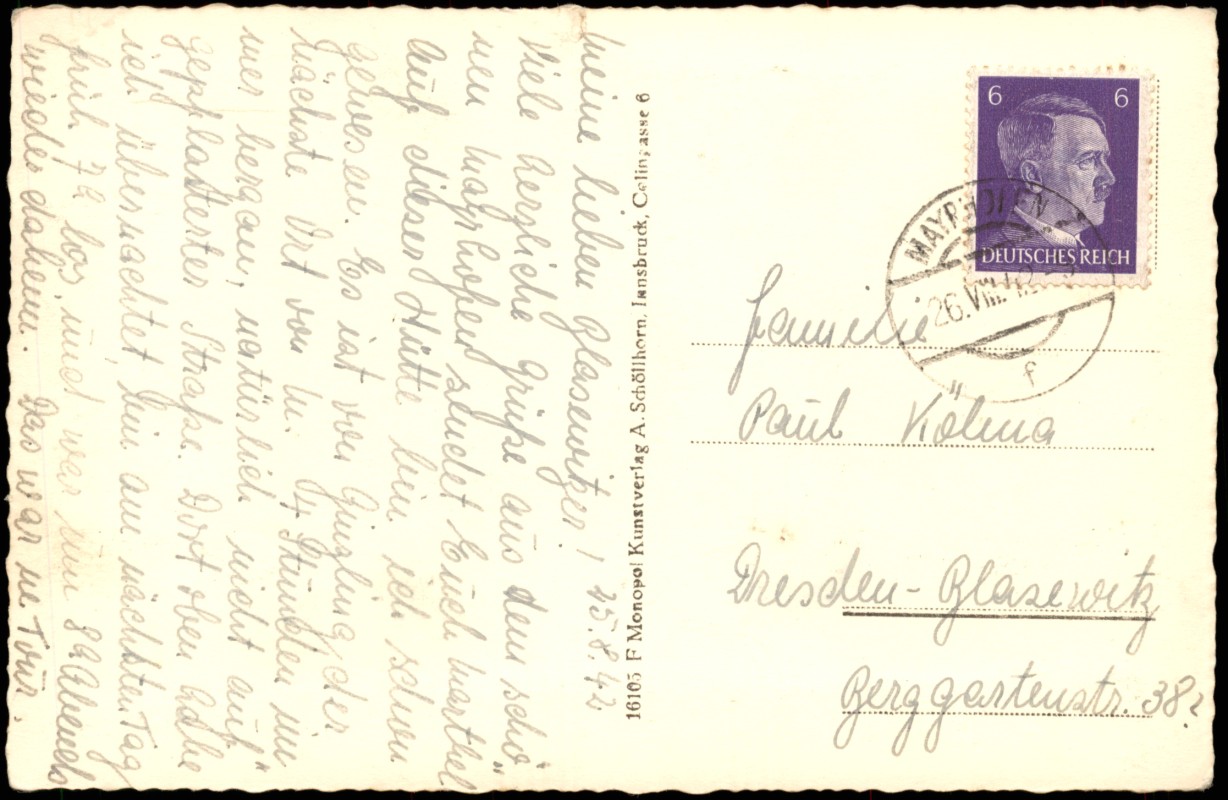 Meine lieben Blasewitzer! 25.8.42
Viele herzliche Grüße aus dem schö-
nen Mayrhofen sendet Euch
Auf dieser Hütte bin ich schon
gewesen. Es ist von Ginzling, der
nächste Ort von M. 4 Stunden im-
mer bergan, natürlich nicht auf
gepflasterter Straße. Dort oben habe
ich übernachtet, bin am nächsten Tag
früh 7h los, und war um 8h Abends
wieder daheim. Das war ne Tour.
16105 F Monopol Kunstverlag A. Schöllhorn, Innsbruck, Colingasse 6
6 6
DEUTSCHES REICH
MAYRHOFEN
26.VIII.42
f
Familie
Paul Kölma
Dresden-Blasewitz
Berggartenstr. 38